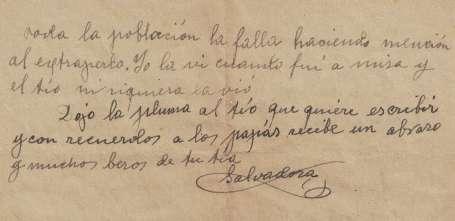 toda la población la falla haciendo mención
al extraperlo. Yo la vi cuanto fuí a misa y
el tío ni siquiera la vió
Dejo la pluma al tío que quiere escribir
y con recuerdos a los papás recibe un abrazo
y muchos besos de tu tía
Salvadora